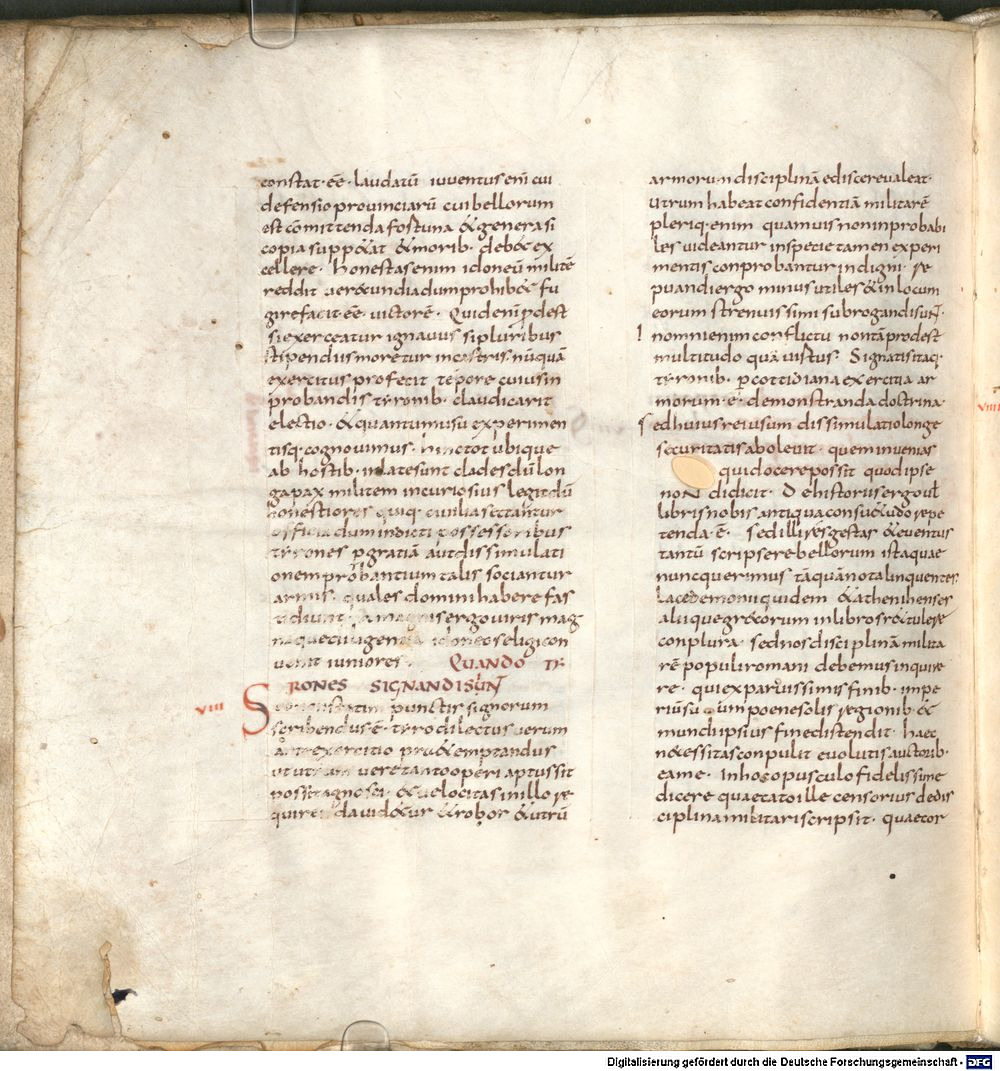 constat· ee͂· laudatū iuventus eni͂ cui
defensio provinciarū cui bellorum
est co͂mittenda fostuna & genera si
copia supp&at & morib· deb& ex
cellere· honestas enim idoneū milite͂
reddit uerecundia dum prohib& fu
gire facit ee͂ victore͂· Quid eni͂ p̱dest
si exerceatur ignavus si pluribus
stipendiis moretur in castris· nūquā
exercitus profecit te͂pore cuius in
probandis tyronib· claudicarit
electio· & quantum usu experimen
tisq· cognovimus· hinc tot ubique
ab hostib· inlatae sunt clades dū lon
ga pax militem incuriosius legit dū
honestiores quiq· civilia sectantur
officia dum indicti possessoribus
tyrones p̱ gratiā aut dissimulati
onem probantium talis sociantur
armis· quales domini habere fas
tidiunt· a magnis ergo viris mag
naque diligentia idoneos eligi con
venit iuniores· QUANDO TY
RONES SIGNANDI SUN͂T
VIII Sed non statim punctis signorum
scribendus e͂· tyro dilectus verum
ante exercitio pr&emptandus
ut utrum vere tanto operi aptus sit
possit agnosci· & velocitas in illo re
quirenda vid&ur & robor & utrū
armorum disciplinā ediscere valeat·
Utrum habeat confidentiā militare͂
pleriq· enim quamvis non inprobabi
les videantur in specie tamen experi
mentis conprobantur indigni· re
pudiandi ergo minus utiles & in locum
eorum strenuissimi subrogandi sun͂t·
nom nienim conflictu non tā prodest
multitudo quā virtus· Signatis itaq·
tyronib· p̱ cottidiana exercitia ar
morum· e͂· demonstranda doctrina·
Sed huius rei usum dissimulatio longe
securitatis abolevit· quem invenias
qui docere possit quod ipse
non didicit· De historiis ergo vel
libris nobis antiqua consuetudo repe
tenda· e͂· sed illi res gestas & eventus
tantū scripsere bellorum ista quae
nunc querimus tāquā nota linquentes·
Lacedemonii quidem & athenihenses
aliique grecorum in libros r&ulere
conplura· sed nos disciplinā milita
re͂ populi romani debemus inquire
re· qui ex parvissimis finib· impe
riū suum poene solis regionib· &
mundi ipsius fine distendit· haec
necessitas conpulit evolutis auctorib·
ea me· in hoc opusculo fidelissime
dicere quae cato ille censorius de dis
ciplina militari scripsit· quae cor
VIIII
Digitalisierung gefördert durch die Deutsche Forschungsgemeinschaft - DFG